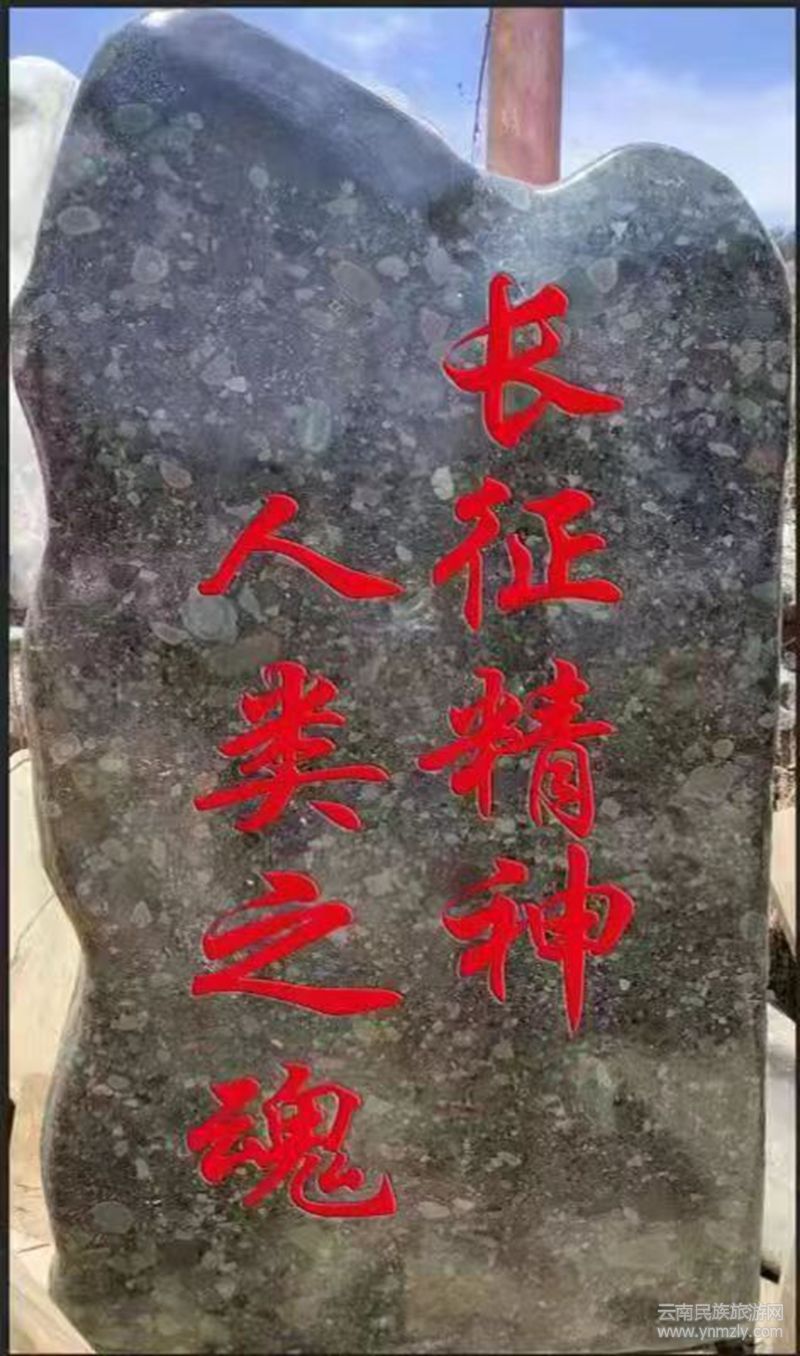 长征精神
人类之魂
云南民族旅游网
www.ynmzly.com